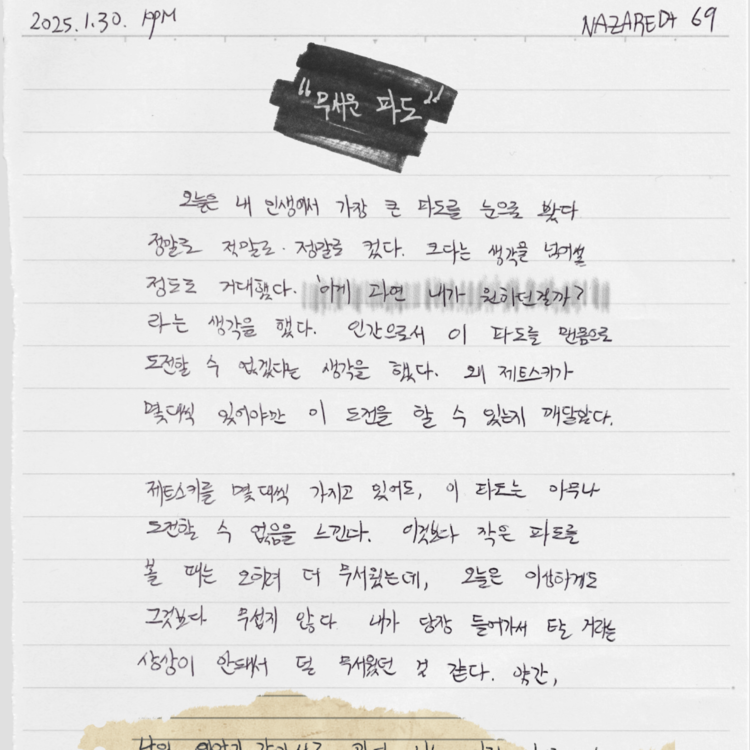 2025.1.30. 1PM
NAZAREDA 69
"무서운 파도"
오늘은 내 인생에서 가장 큰 파도를 눈으로 봤다
정말로 적말로. 정말로 컸다. 크다는 생각을 넘어설
정도로 거대했다. '이게 과연 내가 원하던걸까?
라는 생각을 했다. 인간으로서 이 파도를 맨몸으로
도전할 수 없겠다는 생각을 했다. 왜 제트스키가
몇대씩 있어야만 이 도전을 할 수 있는지 깨달았다.
제트스키를 몇대씩 가지고 있어도, 이 파도는 아무나
도전할 수 없음을 느낀다. 이것보다 작은 파도를
볼 때는 오히려 더 무서웠는데, 오늘은 이상하게도
그것보다 무섭지 않다 내가 당장 들어가서 탈 거라는
상상이 안돼서 덜 무서웠던 것 같다. 약간,